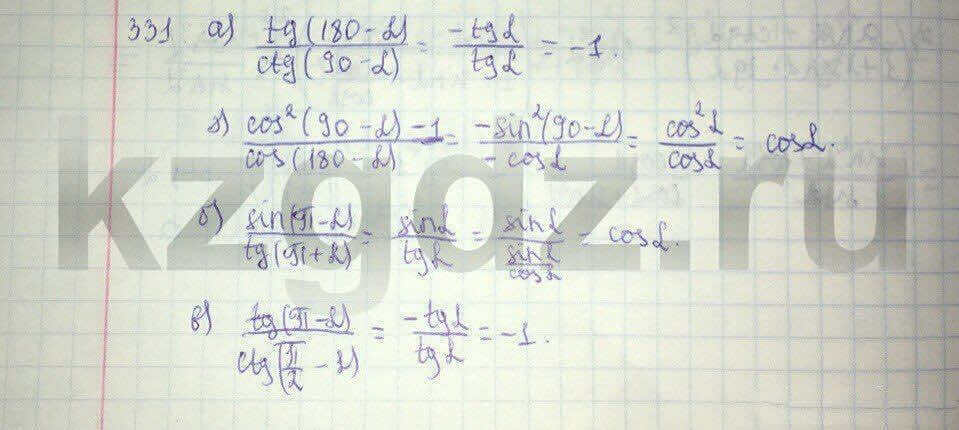 331 а) tg(180-α)/ctg(90-α) = -tgα/tgα = -1.
г) cos²(90-α)-1/cos(180-α) = -sin²(90-α)/-cosα = cos²α/cosα = cosα.
б) sin(π-α)/tg(π+α) = sinα/tgα = sinα/(sinα/cosα) = cosα.
в) tg(π-α)/ctg(π/2-α) = -tgα/tgα = -1.
kzgdz.ru